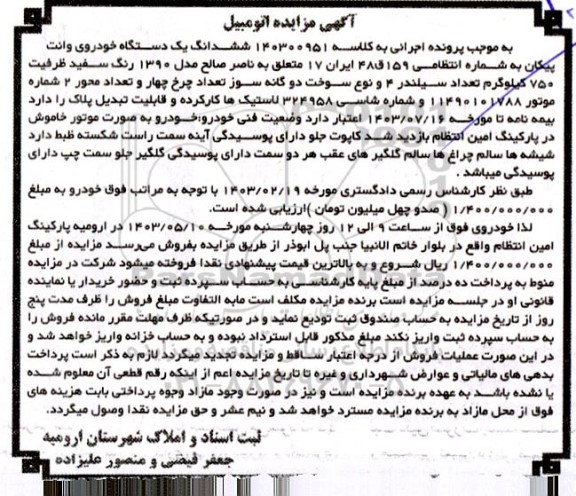 آگهی مزایده اتومبیل
به موجب پرونده اجرائی به کلاسه ۱۴۰۳۰۰۹۵۱ ششدانگ یک دستگاه خودروی وانت
پیکان به شماره انتظامی ۱۵۹ق۴۸ ایران ۱۷ متعلق به ناصر صالح مدل ۱۳۹۰ رنگ سفید ظرفیت
۷۵۰ کیلوگرم تعداد سیلندر ۴ و نوع سوخت دو گانه سوز تعداد چرخ چهار و تعداد محور ۲ شماره
موتور ۱۱۴۹۰۱۰۱۷۸۸ و شماره شاسی ۳۲۴۹۵۸ لاستیک ها کارکرده و قابلیت تبدیل پلاک را دارد
بیمه نامه تا مورخه ۱۴۰۳/۰۷/۱۶ اعتبار دارد وضعیت فنی خودرو:خودرو به صورت موتور خاموش
در پارکینگ امین انتظام بازدید شد کاپوت جلو دارای پوسیدگی آینه سمت راست شکسته ظبط دارد
شیشه ها سالم چراغ ها سالم گلگیر های عقب هر دو سمت دارای پوسیدگی گلگیر جلو سمت چپ دارای
پوسیدگی میباشد .
طبق نظر کارشناس رسمی دادگستری مورخه ۱۴۰۳/۰۲/۱۹ با توجه به مراتب فوق خودرو به مبلغ
۱/۴۰۰/۰۰۰/۰۰۰ ( صدو چهل میلیون تومان )ارزیابی شده است.
لذا خودروی فوق از ساعت ۹ الی ۱۲ روز چهارشنبه مورخه ۱۴۰۳/۰۵/۱۰ در ارومیه پارکینگ
امین انتظام واقع در بلوار خاتم الانبیا جنب پل ابوذر از طریق مزایده بفروش می‌رسد مزایده از مبلغ
۱/۴۰۰/۰۰۰/۰۰۰ ریال شروع و به بالاترین قیمت پیشنهادی نقدا فروخته میشود شرکت در مزایده
منوط به پرداخت ده درصد از مبلغ پایه کارشناسی به حساب سپرده ثبت و حضور خریدار یا نماینده
قانونی او در جلسه مزایده است برنده مزایده مکلف است مابه التفاوت مبلغ فروش را ظرف مدت پنج
روز از تاریخ مزایده به حساب صندوق ثبت تودیع نماید و در صورتیکه ظرف مهلت مقرر مانده فروش را
به حساب سپرده ثبت واریز نکند مبلغ مذکور قابل استرداد نبوده و به حساب خزانه واریز خواهد شد و
در این صورت عملیات فروش از درجه اعتبار ساقط و مزایده تجدید میگردد لازم به ذکر است پرداخت
بدهی های مالیاتی و عوارض شهرداری و غیره تا تاریخ مزایده اعم از اینکه رقم قطعی آن معلوم شده
یا نشده باشد به عهده برنده مزایده است و نیز در صورت وجود مازاد وجوه پرداختی بابت هزینه های
فوق از محل مازاد به برنده مزایده مسترد خواهد شد و نیم عشر و حق مزایده نقدا وصول میگردد.
ثبت اسناد و املاک شهرستان ارومیه
جعفر فیضی و منصور علیزاده